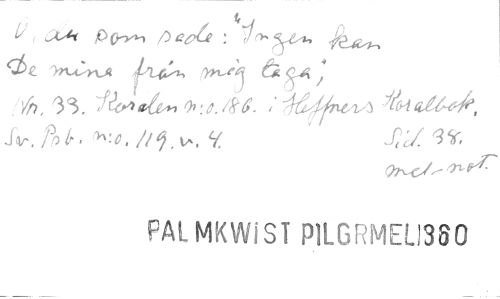 O, du som sade: "Ingen kan
De mina från mig taga",
Nr. 33. Koralen n:o. 186. i Hæffners Koralbok.
Sv. Psb. n:o. 119. v. 4. Sid. 38.
mel-not.
PALMKWIST PILGRMEL1360